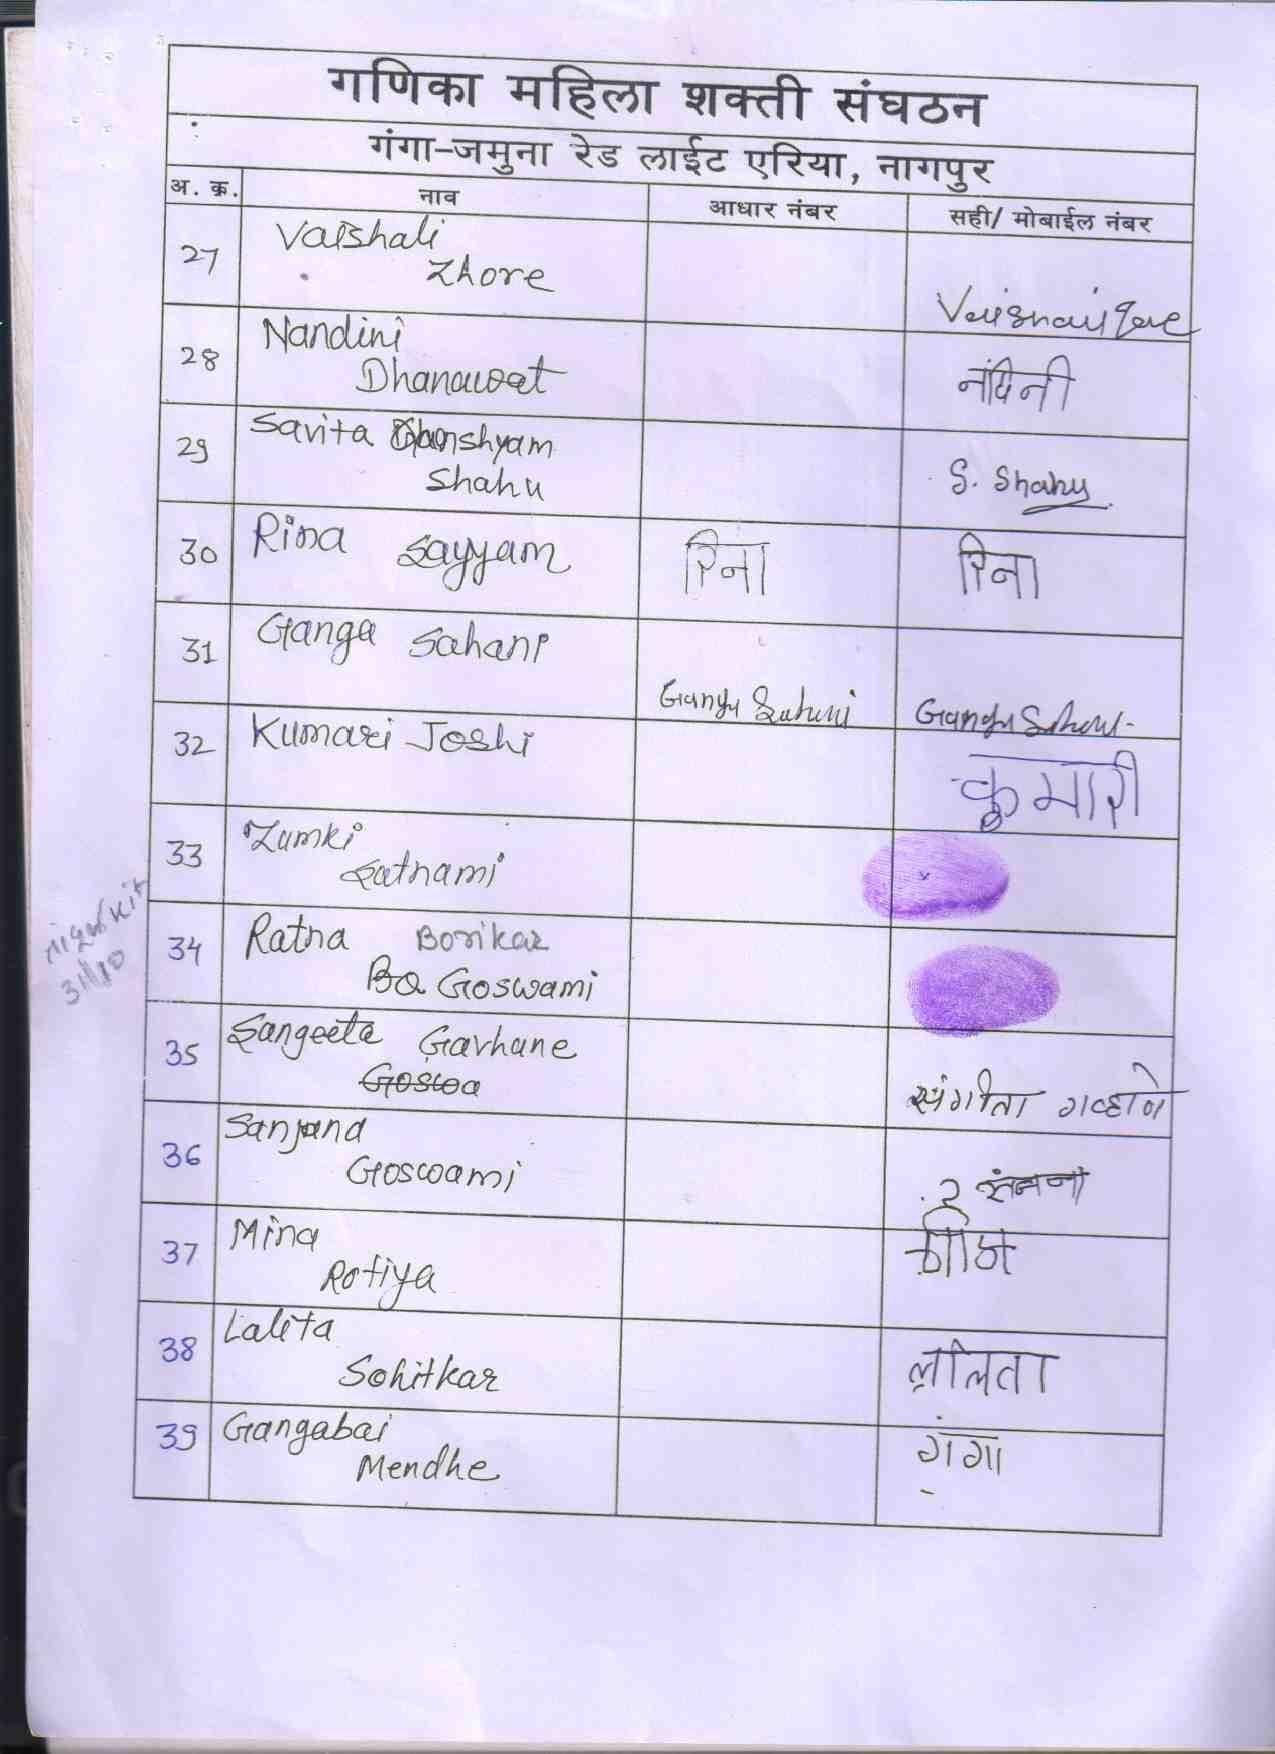 गणिका महिला शक्ती संघठन
गंगा-जमुना रेड लाईट एरिया, नागपुर
अ. क्र. नाव आधार नंबर सही/ मोबाईल नंबर
27 Vaishali
Zhore
28 Nandini
Dhanawat नंदिनी
29 Savita Ghanshyam
Shahu S. Shahu
30 Rina Sayyam रिना रिना
31 Ganga Sahani
Ganga Sahani Ganga Sahani
32 Kumari Joshi कुमारी
33 Zumki
Satnami
34 Ratna Borikar
Ba Goswami
35 Sangeeta Gavhane
Goswa संगीता गव्हाणे
36 Sanjana
Goswami संजना
37 Mina
Rotiya
38 Lalita
Sohitkar ललिता
39 Gangabai गंगा
Mendhe
31/10